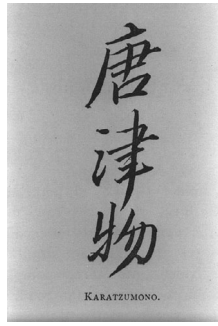 唐津物
KARATZUMONO.